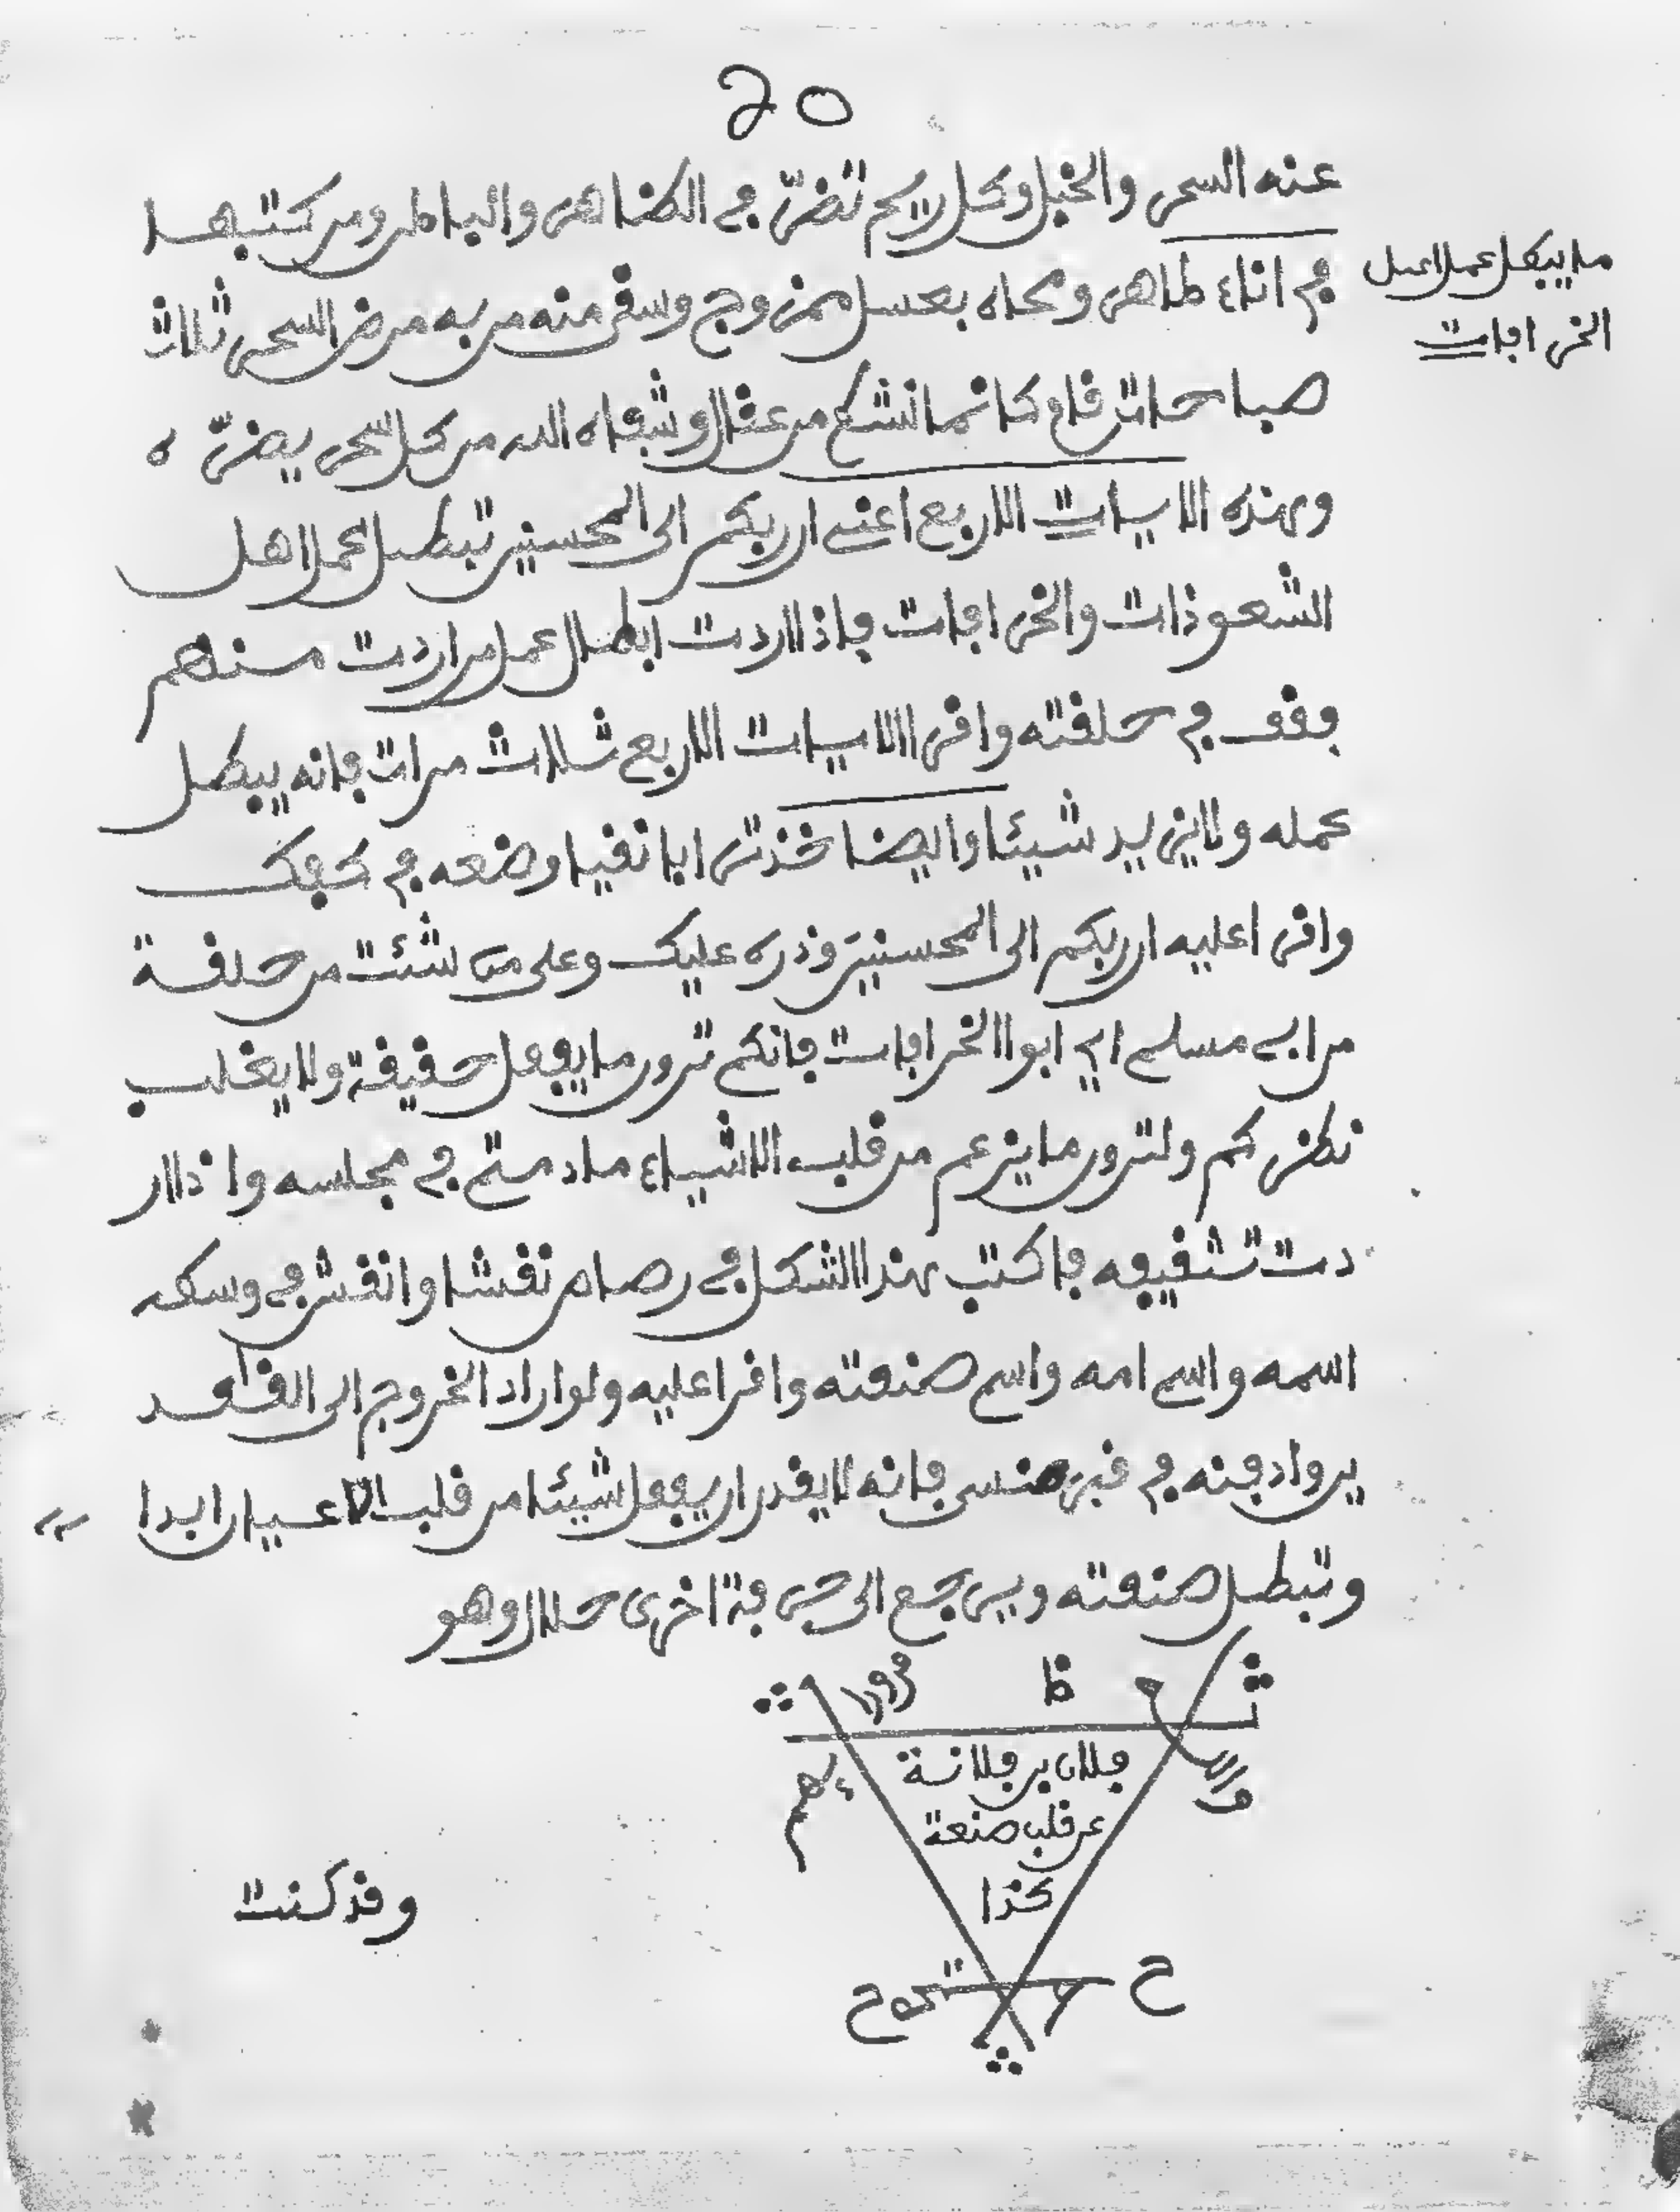 20
عنه السحر والخبل وكل ريح تضرّ في الظاهر والباطن ومن كتبها
في اناء طاهر ومحاه بعسل ممزوج وسقى منه من به مرض السحر ثلاث
ما يبطل عمل اهل
الخرافات
صباحات قام كانما نشط من عقال وشفاه الله من كل سحر يضرّه
وبهذه الايات الاربع اعني ان ربكم الى المحسنين تبطل عمل اهل
الشعوذات والخرافات فاذا اردت ابطال عمل من اردت منهم
فقف في حلقته واقرا الايات الاربع ثلاث مرات فانه يبطل
عمله ولا يزيد شيئا وايضا خذ ترابا نقيا وضعه في كفك
واقرا عليه ان ربكم الى المحسنين وذره عليك وعلى من شئت من حلقة
من ابي مسلم اي ابو الخرافات فانكم ترون ما يفعل حقيقة ولا يغلب
نظركم ولترون ما يزعم من قلب الاشياء ما دمتم في مجلسه واذا ار
دت تثقيفه فاكتب هذا الشكل في رصاص نقشا وانقش في وسطه
اسمه واسم امه واسم صنعته واقرا عليه ولو اراد الخروج الى القاعد
ين وادفنه في قبر منسي فانه لا يقدر ان يفعل شيئا من قلب الاعيان ابدا
وتبطل صنعته ويرجع الى حرفة اخرى حلال وهو
ظ
فلان بن فلانة
عن قلب صنعة
كذا
وقد كنت